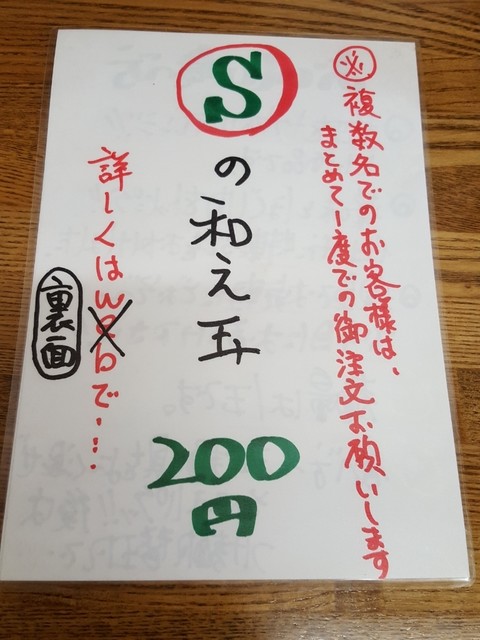 ※複数名でのお客様は、
まとめて1度での御注文お願いします
Sの和え玉
200
円
詳しくはwebで‥‥
裏面